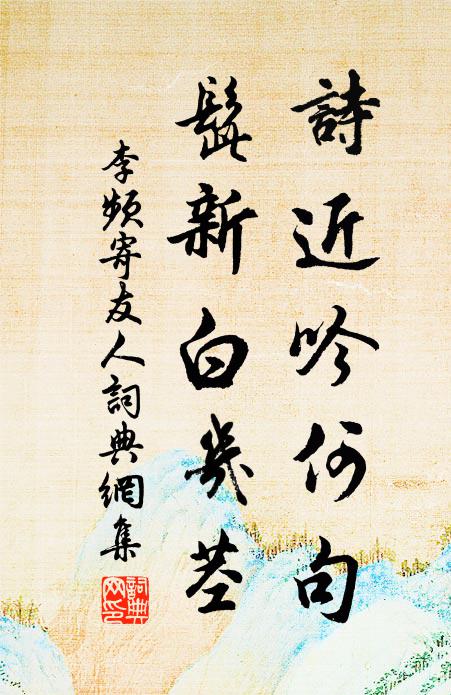 詩近吟何句
髭新白幾莖
李頻寄友人詞典網集
詞典
网印